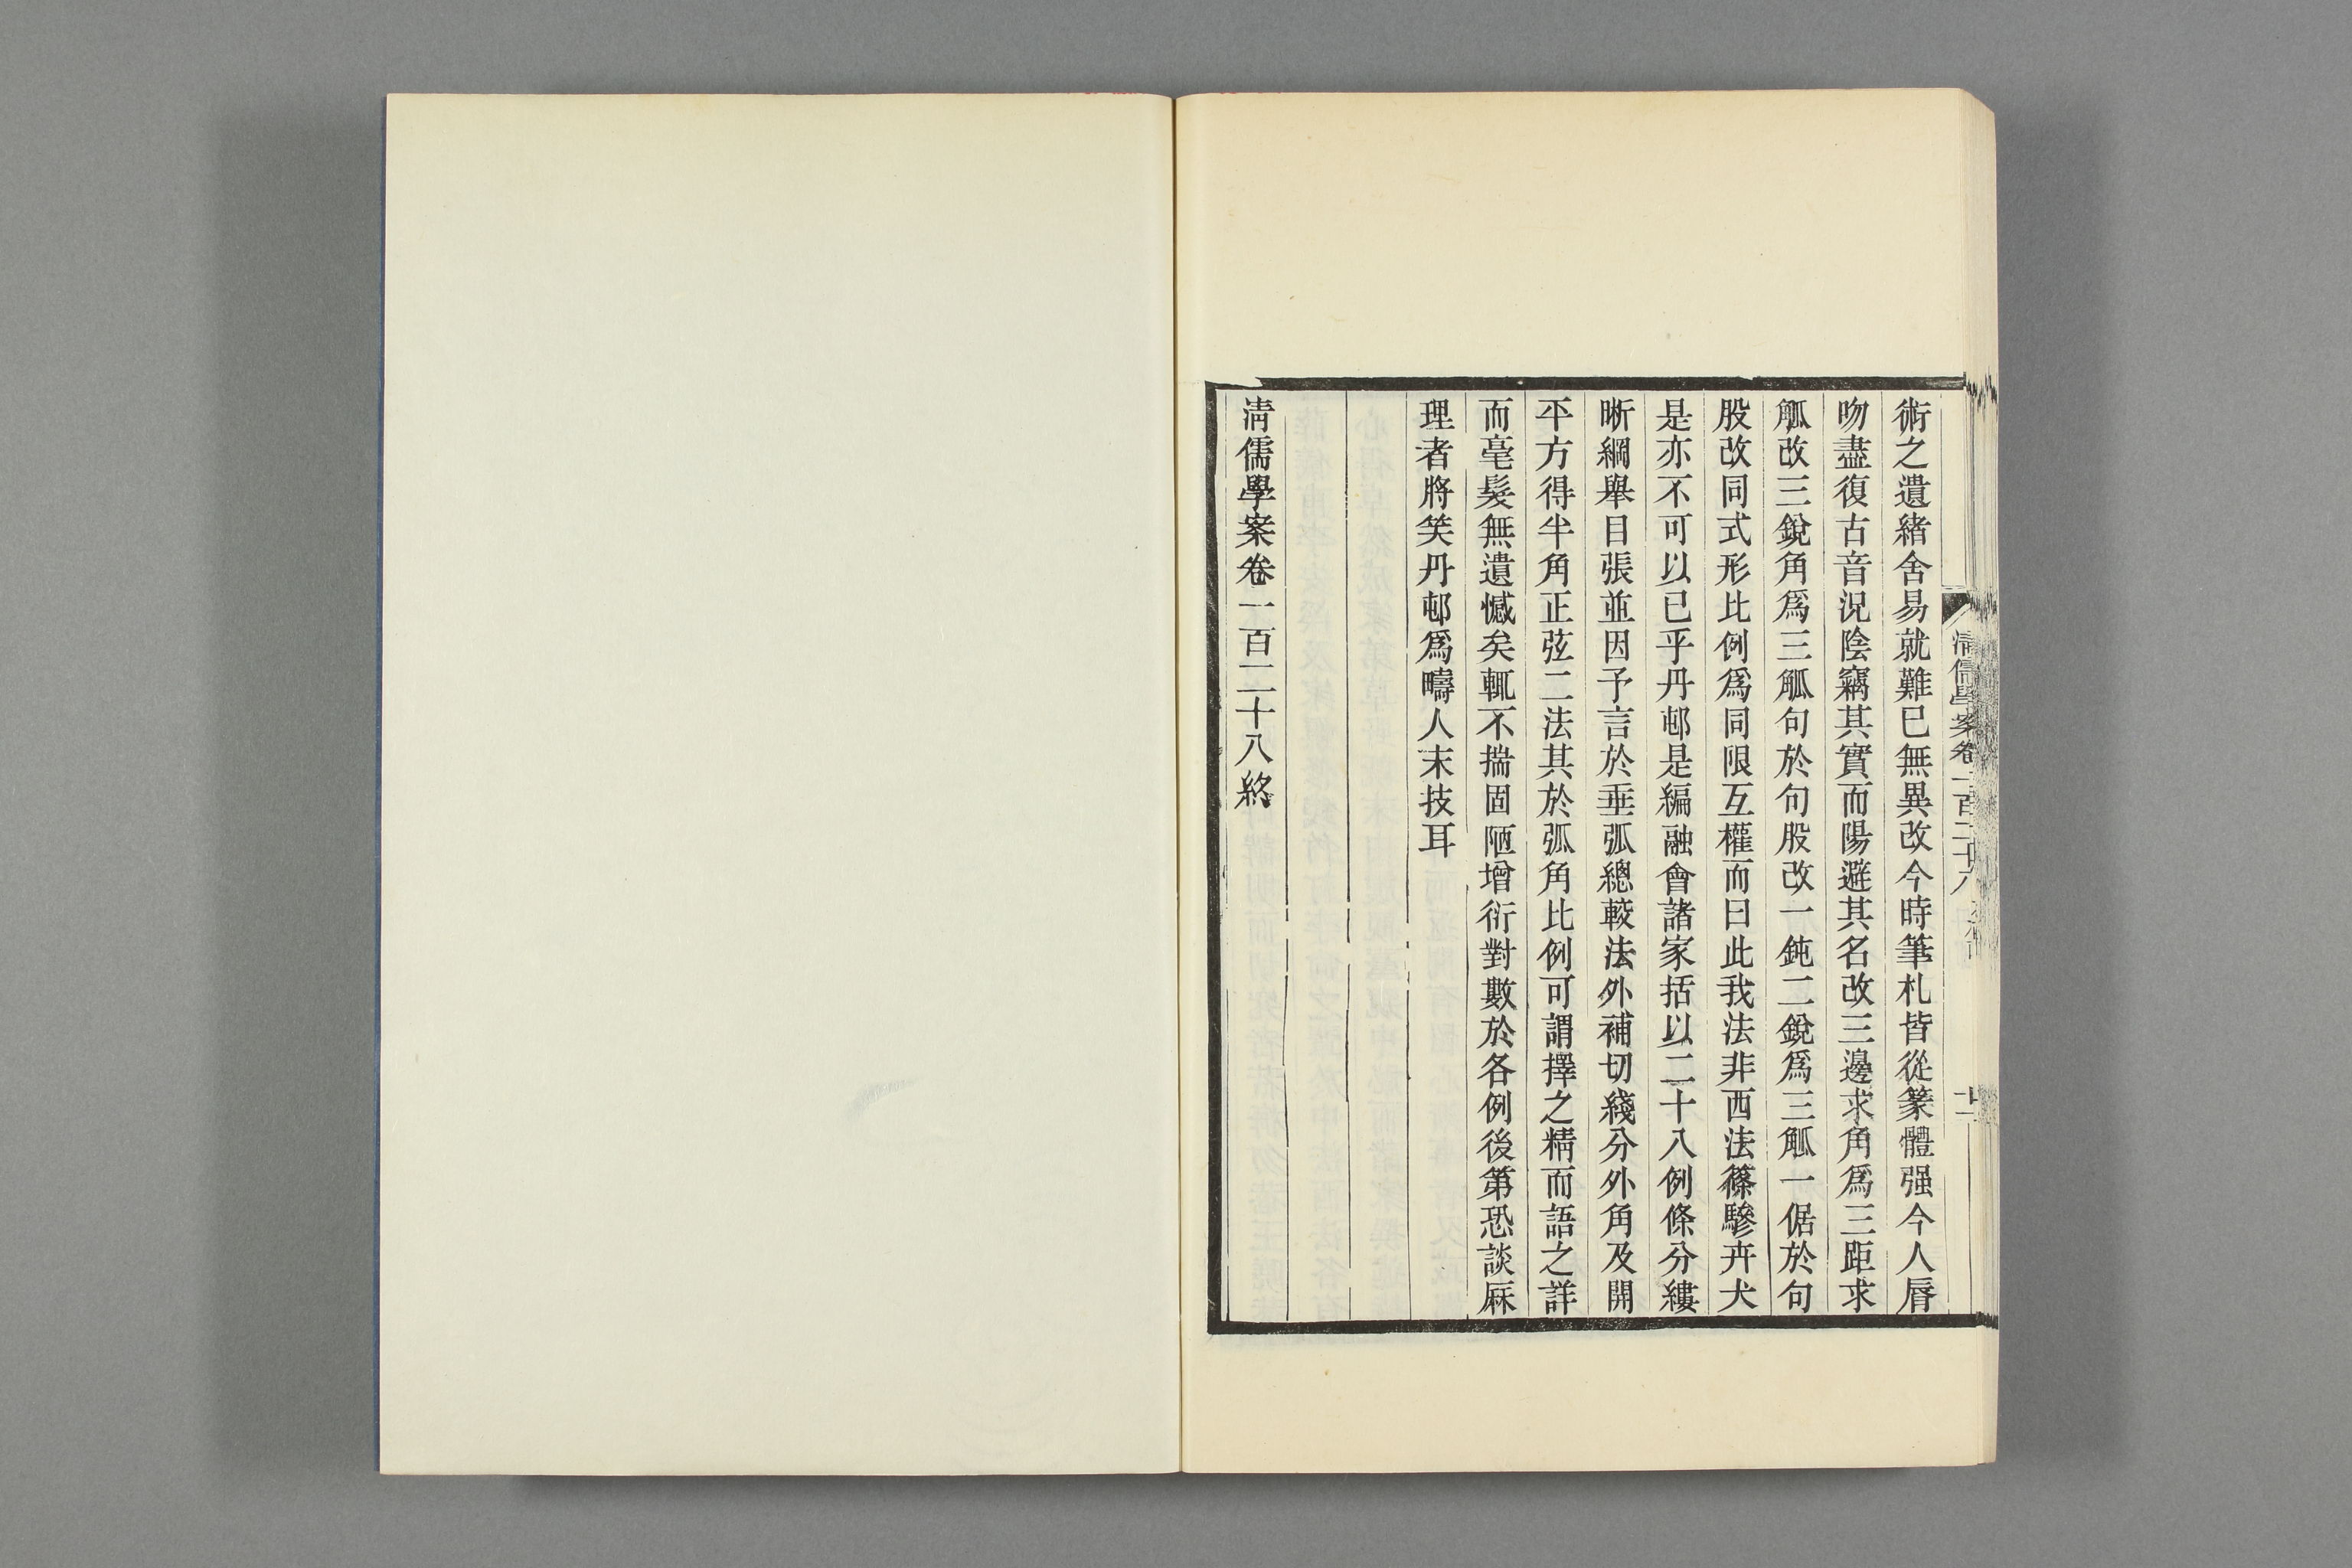 術之遺緒舍易就難已無異改今時筆札皆從篆體强今人脣
吻盡復古音況陰竊其實而陽避其名改三邊求角爲三距求
觚改三銳角爲三觚句於句股改一鈍二銳爲三觚一倨於句
股改同式形比例爲同限互權而曰此我法非西法篠驂卉犬
是亦不可以已乎丹邨是編融會諸家括以二十八例條分縷
晰綱舉目張並因予言於垂弧總較法外補切綫分外角及開
平方得半角正弦二法其於弧角比例可謂擇之精而語之詳
而毫髮無遺憾矣輒不揣固陋增衍對數於各例後第恐談厤
理者將笑丹邨爲疇人末技耳
淸儒學案卷一百二十八終
淸儒學案卷一百二十八